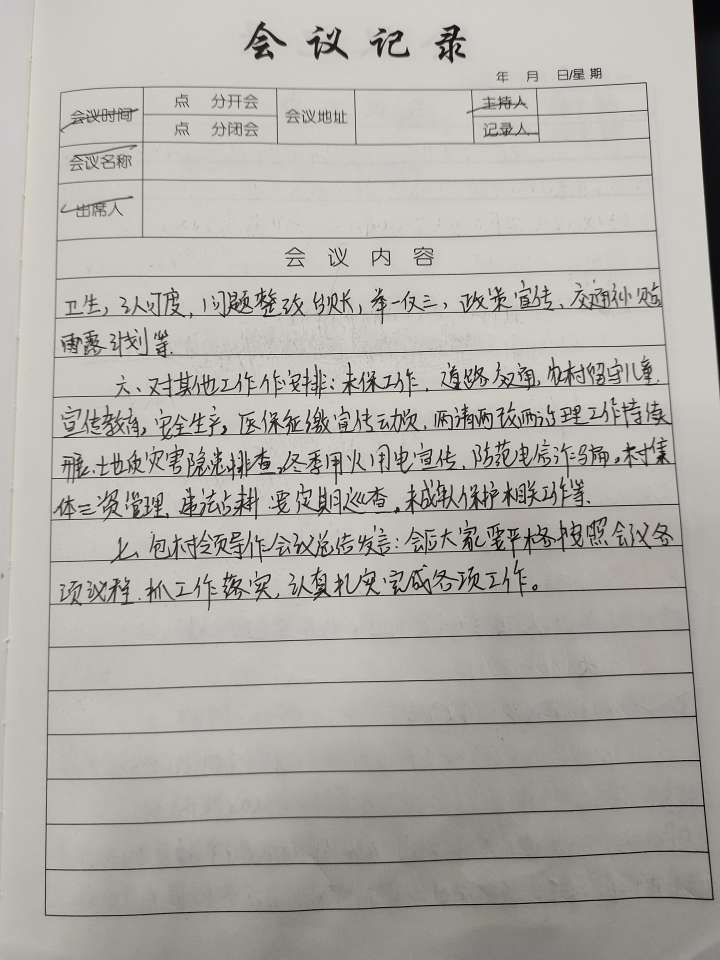 会议记录
年 月 日/星期
会议时间 点 分开会 会议地址 主持人
点 分闭会 记录人
会议名称
出席人
会议内容
卫生，认可度，问题整改台账，举一反三，政策宣传、交通补贴
雨露计划等.
六、对其他工作作安排：未保工作，道路交通，农村留守儿童.
宣传教育，安全生产，医保征缴宣传动员，两清两改两治理工作持续
推进.地质灾害隐患排查，冬季用火用电宣传，防范电信诈骗，村集
体三资管理、违法占耕要定期巡查，未成年人保护相关工作等.
七、包村领导作会议总结发言：会后大家要严格按照会议各
项议程.抓工作落实，认真扎实完成各项工作。